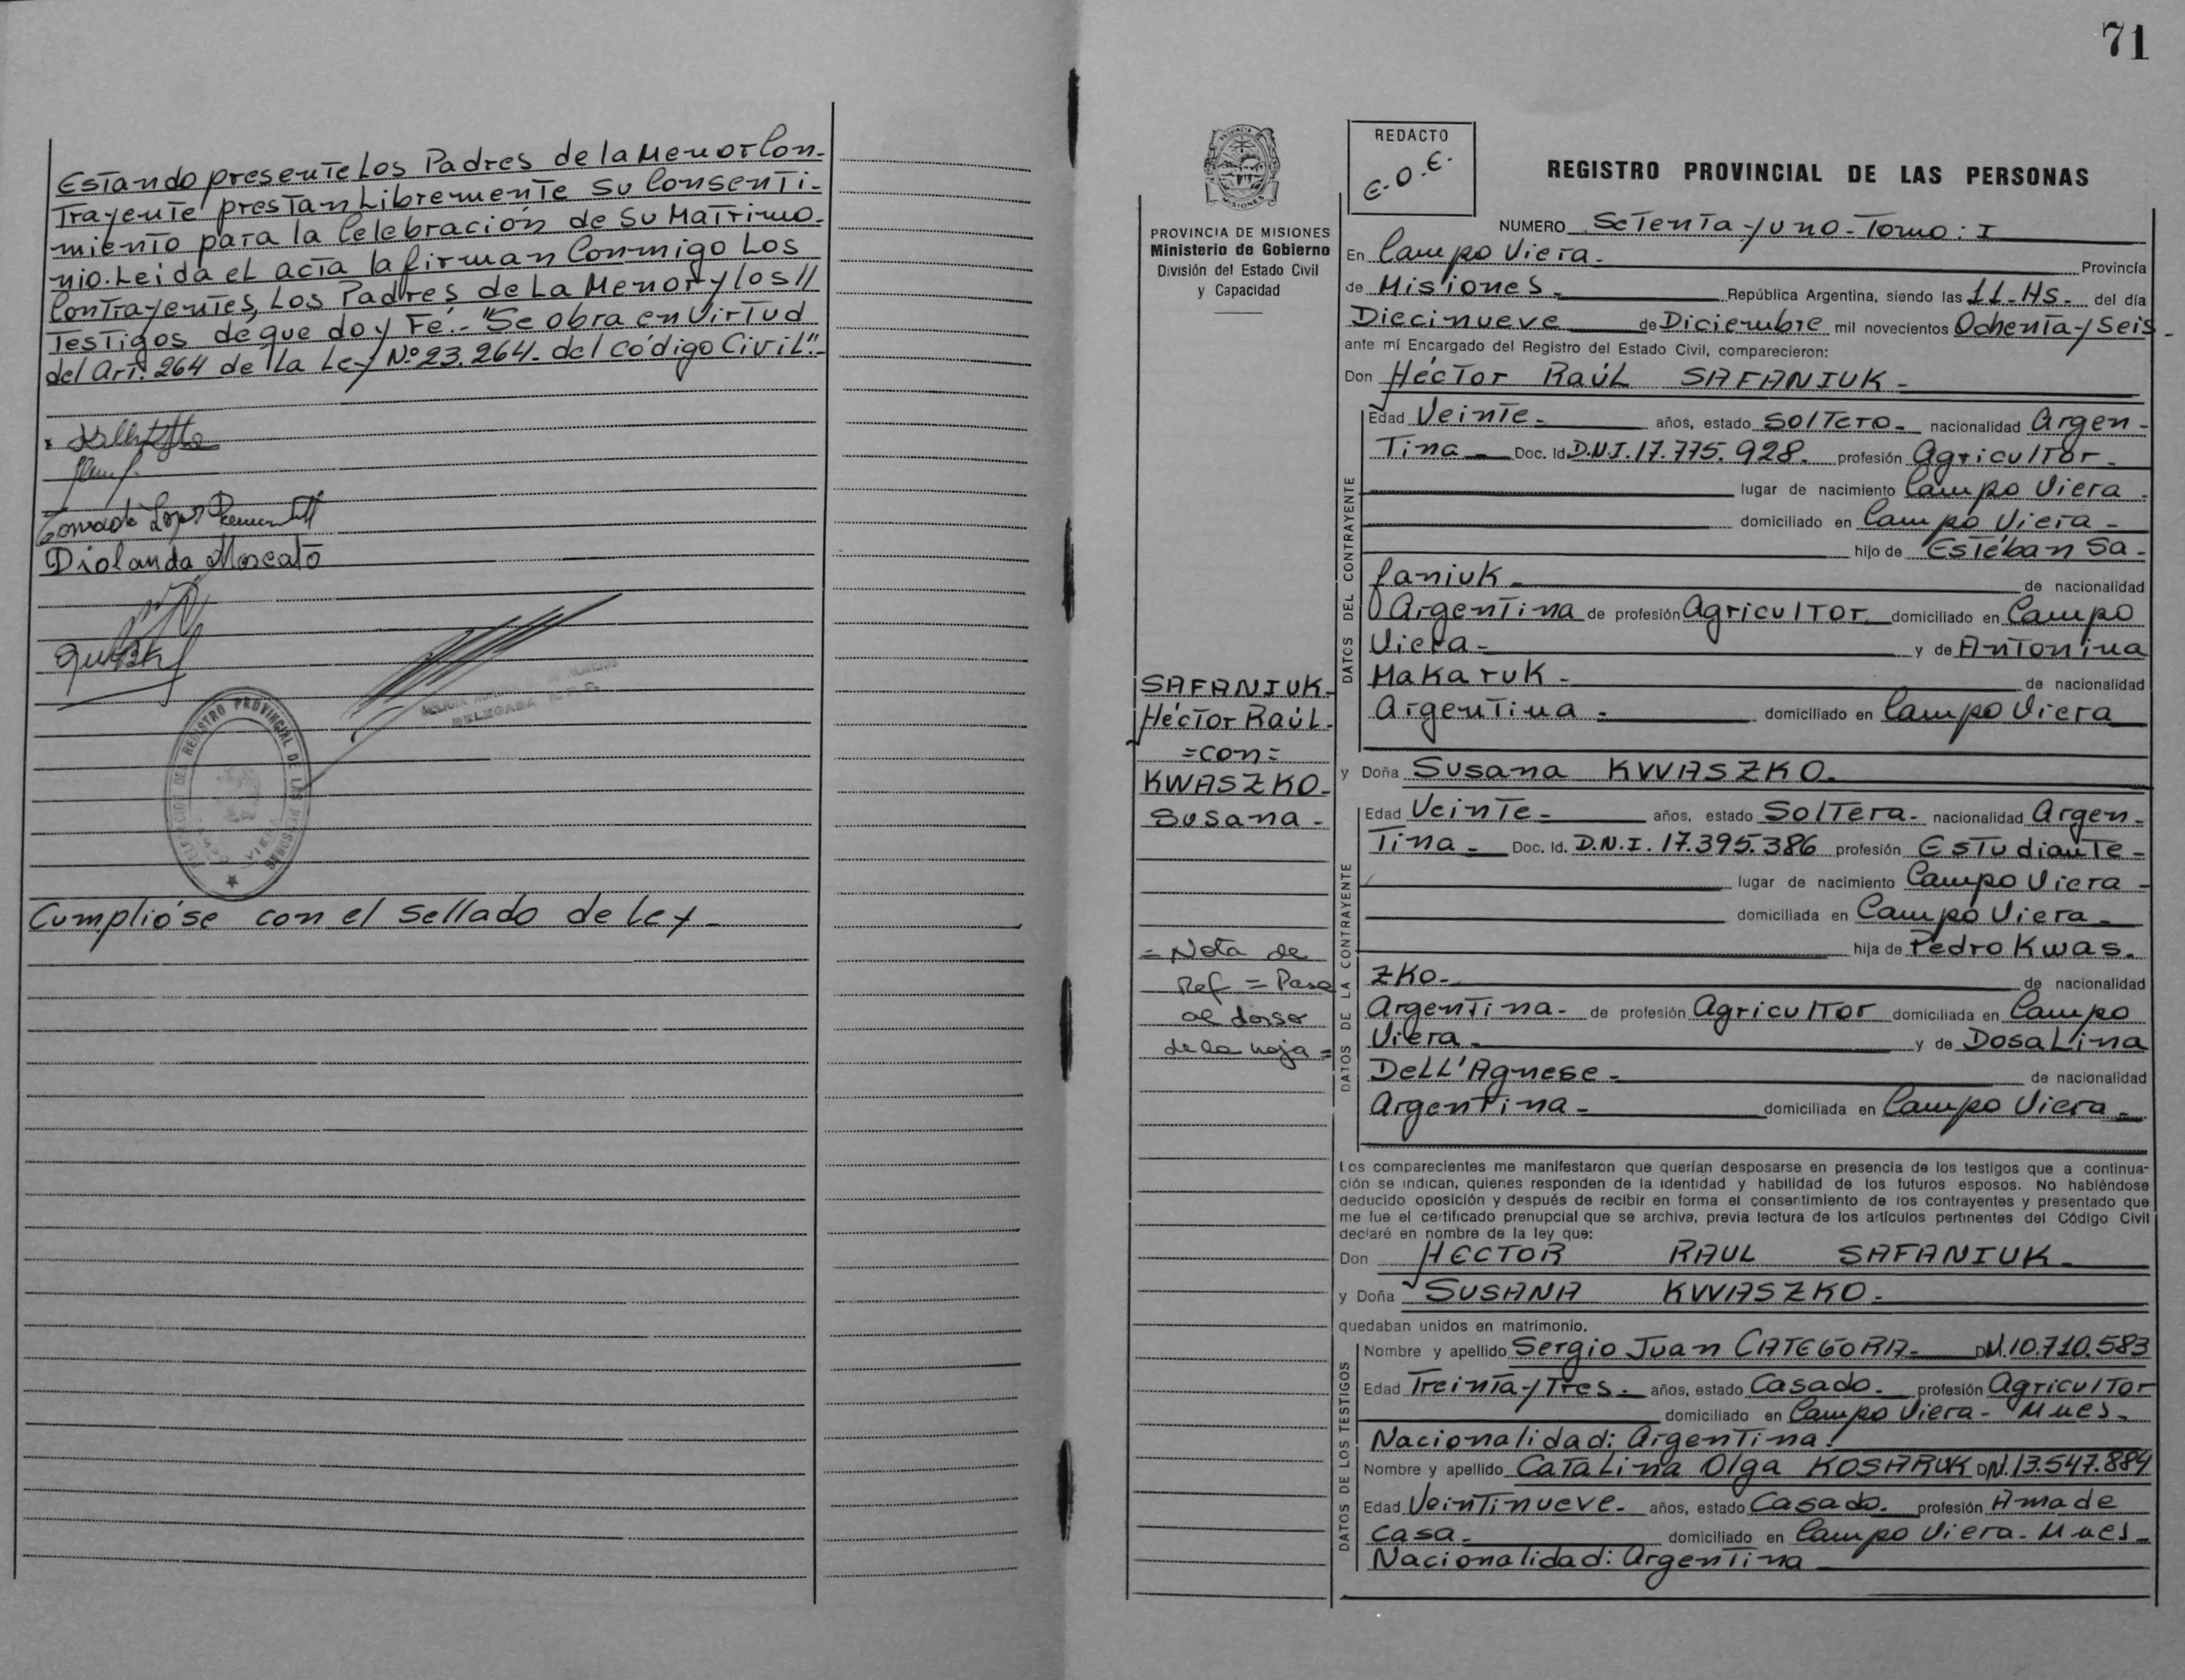 Estando presente Los Padres de la Menor Con-
Trayente prestan Libremente su Consenti-
miento para la Celebración de Su Matrimo-
nio. Leida el acta la firman Conmigo Los
Contrayentes, Los Padres de La Menor y los //
Testigos de que doy Fé.- "Se obra en Virtud
del Art. 264 de la Ley Nº 23.264. del Código Civil".-
Diolanda Moscato
REGISTRO PROVINCIAL DE LAS PERSONAS
DELEGADA
Cumplióse con el sellado de Ley -
71
PROVINCIA DE MISIONES
Ministerio de Gobierno
División del Estado Civil
y Capacidad
SAFANIUK-
Héctor Raúl.
=con=
KWASZKO-
Susana -
= Nota de
Ref = Pasa
al dorso
de la hoja =
REDACTO
E.O.E.
REGISTRO PROVINCIAL DE LAS PERSONAS
NUMERO Setenta y uno - Tomo: I
En Campo Viera. Provincia
de Misiones. República Argentina, siendo las 11-Hs. del día
Diecinueve de Diciembre mil novecientos Ochenta y Seis -
ante mí Encargado del Registro del Estado Civil, comparecieron:
Don Héctor Raúl SAFANIUK -
DATOS DEL CONTRAYENTE
Edad Veinte - años, estado Soltero - nacionalidad Argen-
Tina - Doc. Id. D.N.I. 17.775.928. profesión Agricultor -
lugar de nacimiento Campo Viera.
domiciliado en Campo Viera -
hijo de Estéban Sa-
faniuk - de nacionalidad
Argentina de profesión Agricultor domiciliado en Campo
Viera - y de Antonina
Makaruk - de nacionalidad
Argentina - domiciliado en Campo Viera
y Doña Susana KWASZKO.
DATOS DE LA CONTRAYENTE
Edad Veinte - años, estado Soltera - nacionalidad Argen-
Tina - Doc. Id. D.N.I. 17.395.386 profesión Estudiante -
lugar de nacimiento Campo Viera -
domiciliada en Campo Viera -
hija de Pedro Kwas-
zko - de nacionalidad
Argentina - de profesión Agricultor domiciliada en Campo
Viera - y de Dosalina
Dell'Agnese - de nacionalidad
Argentina - domiciliada en Campo Viera -
Los comparecientes me manifestaron que querían desposarse en presencia de los testigos que a continua-
ción se indican, quienes responden de la identidad y habilidad de los futuros esposos. No habiéndose
deducido oposición y después de recibir en forma el consentimiento de los contrayentes y presentado que
me fue el certificado prenupcial que se archiva, previa lectura de los artículos pertinentes del Código Civil
declaré en nombre de la ley que:
Don HECTOR RAUL SAFANIUK -
y Doña SUSANA KWASZKO -
quedaban unidos en matrimonio.
DATOS DE LOS TESTIGOS
Nombre y apellido Sergio Juan CATEGORA - DNI. 10.710.583
Edad Treinta y Tres - años, estado Casado - profesión Agricultor
domiciliado en Campo Viera - Mnes -
Nacionalidad: Argentina.
Nombre y apellido Catalina Olga KOSARUK DNI. 13.547.884
Edad Veintinueve - años, estado Casado. profesión Ama de
casa - domiciliado en Campo Viera - Mnes -
Nacionalidad: Argentina